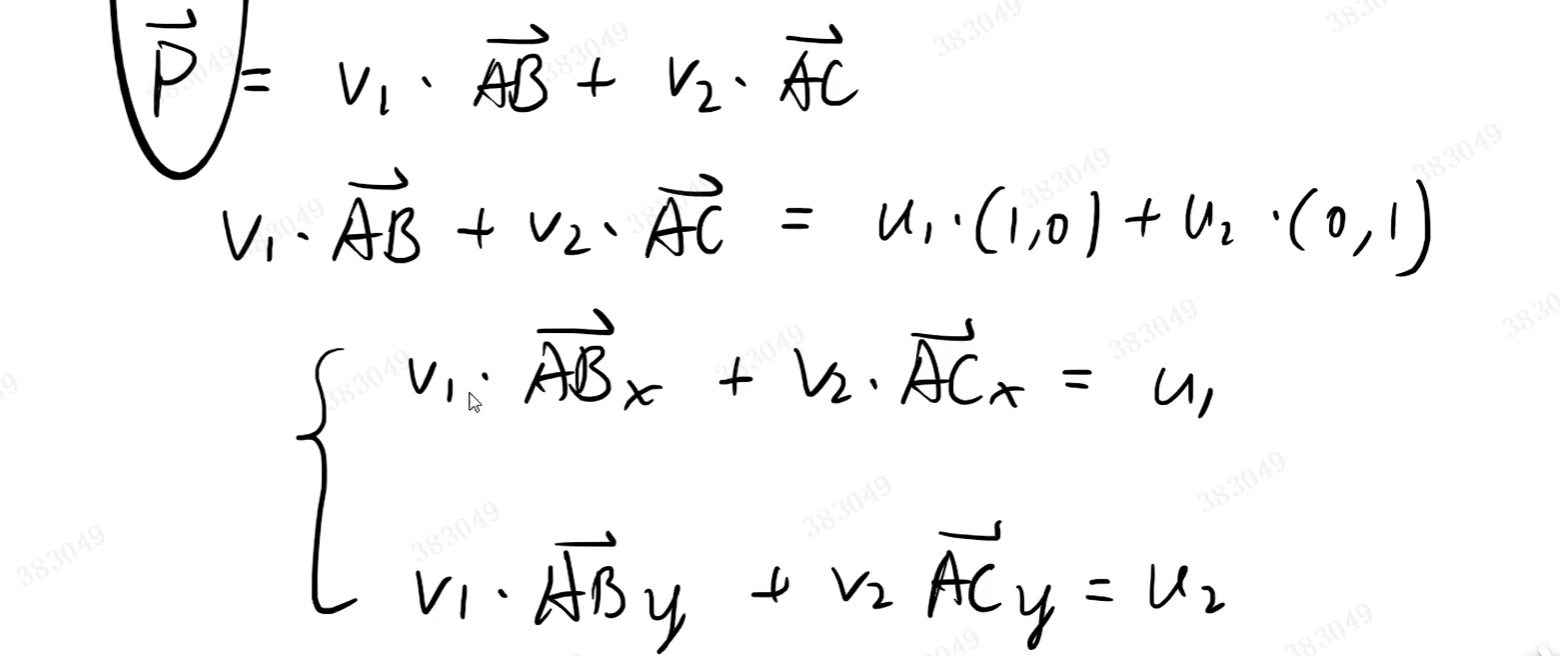 \vec{P} = v_1 \cdot \vec{AB} + v_2 \cdot \vec{AC}
v_1 \cdot \vec{AB} + v_2 \cdot \vec{AC} = u_1 \cdot (1,0) + u_2 \cdot (0,1)
v_1 \cdot \vec{AB}_x + v_2 \cdot \vec{AC}_x = u_1
v_1 \cdot \vec{AB}_y + v_2 \vec{AC}_y = u_2
383049